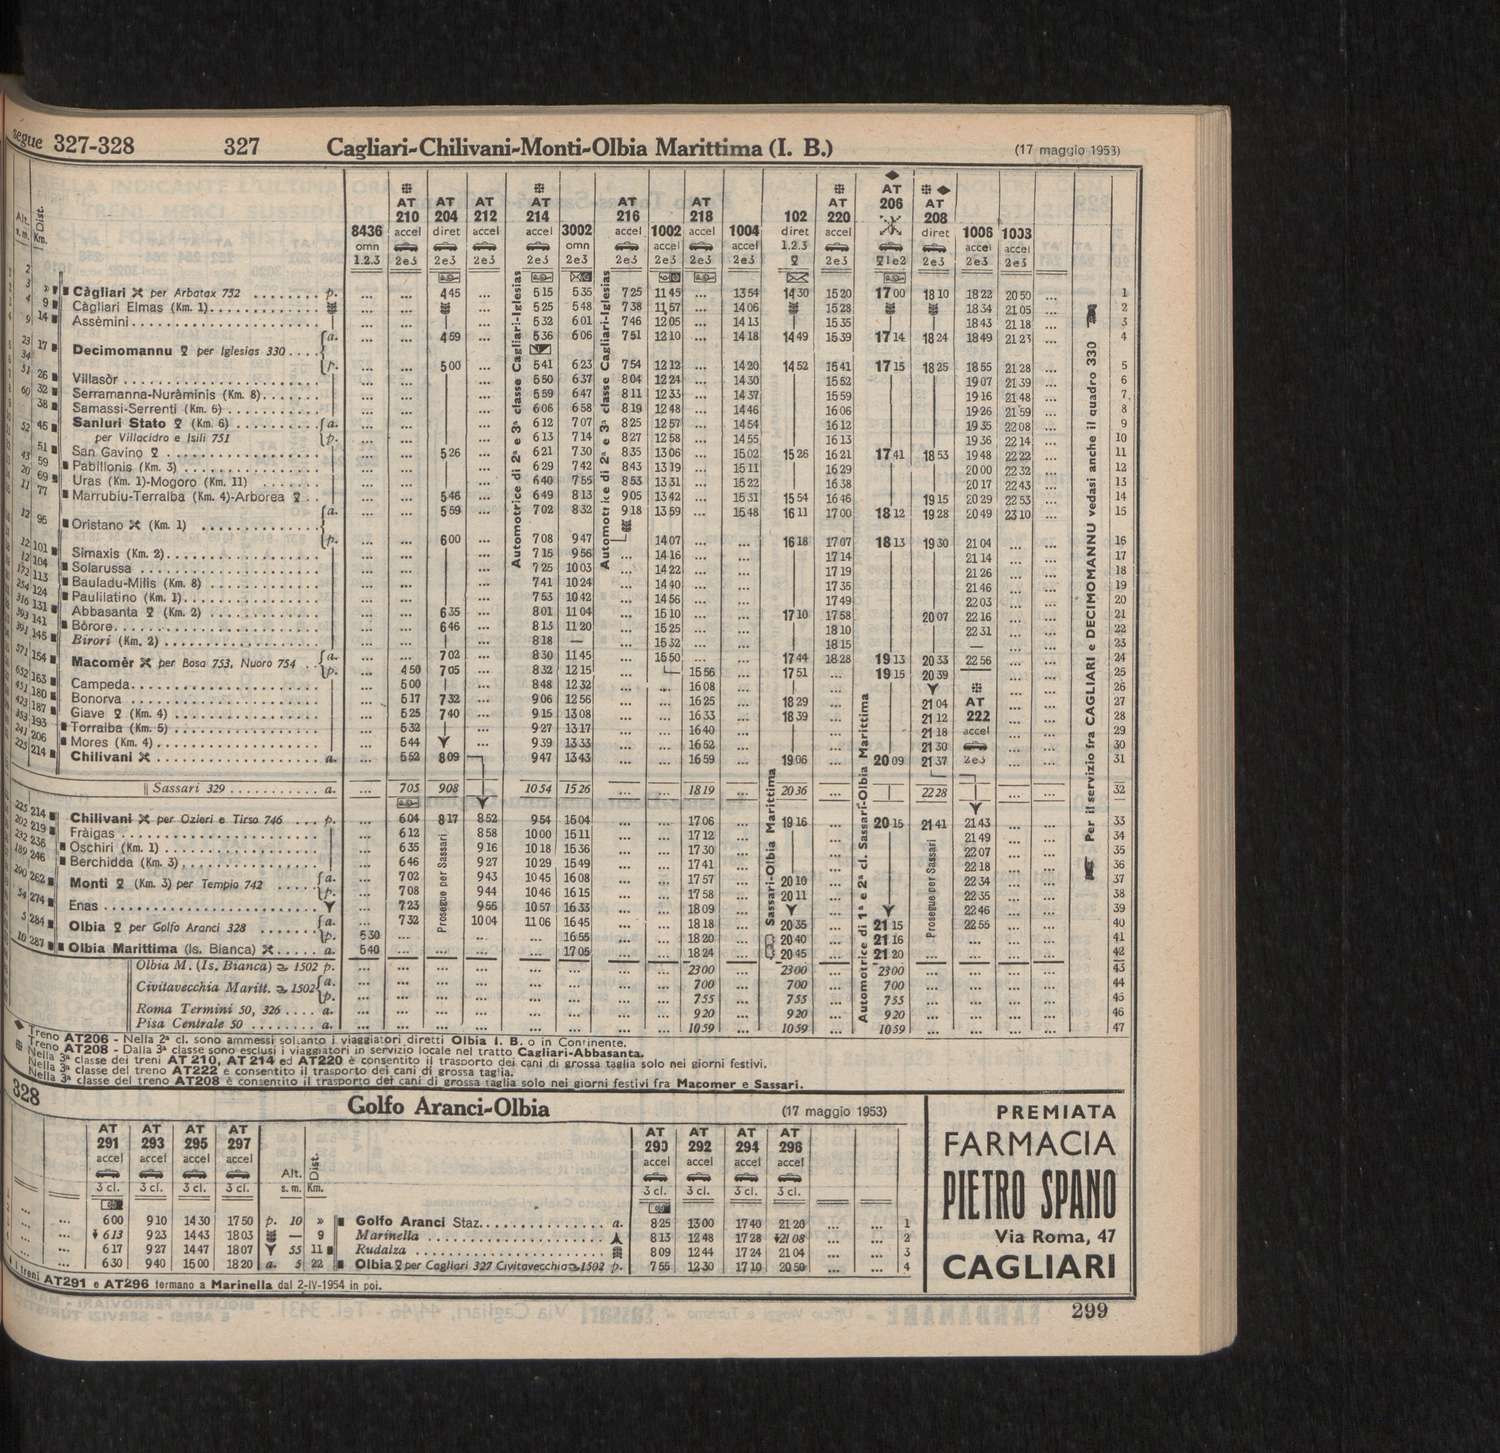 segue 327-328 327 Cagliari-Chilivani-Monti-Olbia Marittima (I. B.) (17 maggio 1953)
Alt. s. m. Dist. Km.
8436 omn 1.2.3
AT 210 accel 2e3
AT 204 diret 2e3
AT 212 accel 2e3
AT 214 accel 2e3
3002 omn 2e3
AT 216 accel 2e3
1002 accel 2e3
AT 218 accel 2e3
1004 accel 2e3
102 diret 1.2.3
AT 220 accel 2e3
AT 206 1e2
AT 208 diret 2e3
1006 accel 2e3
1003 accel 2e3
Càgliari per Arbatax 752 ........ p. ... ... 4 45 ... 5 15 5 35 7 25 11 45 ... 13 54 14 30 15 20 17 00 18 10 18 22 20 50 ... 1
9 Càgliari Elmas (Km. 1) ... ... ... 5 25 5 48 7 38 11 57 ... 14 06 15 28 18 34 21 05 ... 2
14 Assèmini ... ... | ... 5 32 6 01 7 46 12 05 ... 14 13 | 15 35 | | 18 43 21 18 ... 3
17 Decimomannu per Iglesias 330 .... a. ... ... 4 59 ... 5 36 6 06 7 51 12 10 ... 14 18 14 49 15 39 17 14 18 24 18 49 21 23 ... 4
p. ... ... 5 00 ... 5 41 6 23 7 54 12 12 ... 14 20 14 52 15 41 17 15 18 25 18 55 21 28 ... 5
26 Villasòr ... ... | ... 5 50 6 37 8 04 12 24 ... 14 30 | 15 52 | | 19 07 21 39 ... 6
32 Serramanna-Nuràminis (Km. 8) ... ... | ... 5 59 6 47 8 11 12 33 ... 14 37 | 15 59 | | 19 16 21 48 ... 7
38 Samassi-Serrenti (Km. 6) ... ... | ... 6 06 6 58 8 19 12 48 ... 14 46 | 16 06 | | 19 26 21 59 ... 8
45 Sanluri Stato (Km. 6) a. ... ... | ... 6 12 7 07 8 25 12 57 ... 14 54 | 16 12 | | 19 35 22 08 ... 9
per Villacidro e Isili 751 p. ... ... | ... 6 13 7 14 8 27 12 58 ... 14 55 | 16 13 | | 19 36 22 14 ... 10
51 San Gavino ... ... 5 26 ... 6 21 7 30 8 35 13 06 ... 15 02 15 26 16 21 17 41 18 53 19 48 22 22 ... 11
59 Pabillonis (Km. 3) ... ... | ... 6 29 7 42 8 43 13 19 ... 15 11 | 16 29 | | 20 00 22 32 ... 12
69 Uras (Km. 1)-Mogoro (Km. 11) ... ... | ... 6 40 7 55 8 53 13 31 ... 15 22 | 16 38 | | 20 17 22 43 ... 13
77 Marrubiu-Terralba (Km. 4)-Arborea ... ... 5 46 ... 6 49 8 13 9 05 13 42 ... 15 31 15 54 16 46 | 19 15 20 29 22 53 ... 14
95 Oristano (Km. 1) a. ... ... 5 59 ... 7 02 8 32 9 18 13 59 ... 15 48 16 11 17 00 18 12 19 28 20 49 23 10 ... 15
p. ... ... 6 00 ... 7 08 9 47 ... 14 07 ... ... 16 18 17 07 18 13 19 30 21 04 ... ... 16
101 Simaxis (Km. 2) ... ... | ... 7 15 9 56 ... 14 16 ... ... | 17 14 | | 21 14 ... ... 17
104 Solarussa ... ... | ... 7 25 10 03 ... 14 22 ... ... | 17 19 | | 21 26 ... ... 18
113 Bauladu-Milis (Km. 8) ... ... | ... 7 41 10 24 ... 14 40 ... ... | 17 35 | | 21 46 ... ... 19
124 Paulilatino (Km. 1) ... ... | ... 7 53 10 42 ... 14 56 ... ... | 17 49 | | 22 03 ... ... 20
131 Abbasanta (Km. 2) ... ... 6 35 ... 8 01 11 04 ... 15 10 ... ... 17 10 17 58 | 20 07 22 16 ... ... 21
141 Bòrore ... ... 6 46 ... 8 13 11 20 ... 15 25 ... ... | 18 10 | | 22 31 ... ... 22
145 Birori (Km. 2) ... ... | ... 8 18 — ... 15 32 ... ... | 18 15 | | — ... ... 23
154 Macomèr per Bosa 753, Nuoro 754 a. ... ... 7 02 ... 8 30 11 45 ... 15 50 ... ... 17 44 18 28 19 13 20 33 22 56 ... ... 24
p. ... 4 50 7 05 ... 8 32 12 15 ... 15 56 ... 17 51 ... 19 15 20 39 ... ... 25
163 Campeda ... 5 00 | ... 8 48 12 32 ... ... 16 08 ... | ... | ... ... 26
180 Bonorva ... 5 17 7 32 ... 9 06 12 56 ... ... 16 25 ... 18 29 ... | 21 04 ... ... 27
187 Giave (Km. 4) ... 5 25 7 40 ... 9 15 13 08 ... ... 16 33 ... 18 39 ... | 21 12 ... ... 28
193 Torralba (Km. 5) ... 5 32 | ... 9 27 13 17 ... ... 16 40 ... | ... | 21 18 ... ... 29
206 Mores (Km. 4) ... 5 44 ... 9 39 13 33 ... ... 16 52 ... | ... | 21 30 ... ... 30
214 Chilivani a. ... 5 52 8 09 9 47 13 43 ... ... 16 59 ... 19 06 ... 20 09 21 37 ... ... 31
AT 222 accel 2e3
Sassari 329 ........... a. ... 7 05 9 08 10 54 15 26 ... ... 18 19 ... 20 36 ... | 22 28 ... ... 32
214 Chilivani per Ozieri e Tirso 746 ... p. ... 6 04 8 17 8 52 9 54 15 04 ... ... 17 06 ... 19 16 ... 20 15 21 41 21 43 ... ... 33
219 Fràigas ... 6 12 8 58 10 00 15 11 ... ... 17 12 ... | ... | 21 49 ... ... 34
236 Oschiri (Km. 1) ... 6 35 9 16 10 18 15 36 ... ... 17 30 ... | ... | 22 07 ... ... 35
246 Berchidda (Km. 3) ... 6 46 9 27 10 29 15 49 ... ... 17 41 ... | ... | 22 18 ... ... 36
262 Monti (Km. 3) per Tempio 742 a. ... 7 02 9 43 10 45 16 08 ... ... 17 57 ... 20 10 ... | 22 34 ... ... 37
p. ... 7 08 9 44 10 46 16 15 ... ... 17 58 ... 20 11 ... | 22 35 ... ... 38
274 Enas ... 7 23 9 55 10 57 16 33 ... ... 18 09 ... ... 22 46 ... ... 39
284 Olbia per Golfo Aranci 328 a. ... 7 32 10 04 11 06 16 45 ... ... 18 18 ... 20 35 ... 21 15 22 55 ... ... 40
p. 5 30 ... ... ... 16 55 ... ... 18 20 ... 20 40 ... 21 16 ... ... ... 41
287 Olbia Marittima (Is. Bianca) a. 5 40 ... ... ... 17 05 ... ... 18 24 ... 20 45 ... 21 20 ... ... ... 42
Olbia M. (Is. Bianca) 1502 p. ... ... ... ... ... ... ... ... 23 00 ... 23 00 ... 23 00 ... ... ... ... 43
Civitavecchia Maritt. 1502 a. ... ... ... ... ... ... ... ... 7 00 ... 7 00 ... 7 00 ... ... ... ... 44
p. ... ... ... ... ... ... ... ... 7 55 ... 7 55 ... 7 55 ... ... ... ... 45
Roma Termini 50, 326 .... a. ... ... ... ... ... ... ... ... 9 20 ... 9 20 ... 9 20 ... ... ... ... 46
Pisa Centrale 50 ........ a. ... ... ... ... ... ... ... ... 10 59 ... 10 59 ... 10 59 ... ... ... ... 47
Automotrice di 2ª e 3ª classe Cagliari-Iglesias
Automotrice di 2ª e 3ª classe Cagliari-Iglesias
Prosegue per Sassari
Sassari-Olbia Marittima
Automotrice di 1ª e 2ª cl. Sassari-Olbia Marittima
Prosegue per Sassari
Per il servizio fra CAGLIARI e DECIMOMANNU vedasi anche il quadro 330
Treno AT206 - Nella 2ª cl. sono ammessi soltanto i viaggiatori diretti Olbia I. B. o in Continente.
Treno AT208 - Dalla 3ª classe sono esclusi i viaggiatori in servizio locale nel tratto Cagliari-Abbasanta.
Nella 3ª classe dei treni AT 210, AT 214 ed AT220 è consentito il trasporto dei cani di grossa taglia solo nei giorni festivi.
Nella 3ª classe del treno AT222 è consentito il trasporto dei cani di grossa taglia.
Nella 3ª classe del treno AT208 è consentito il trasporto dei cani di grossa taglia solo nei giorni festivi fra Macomer e Sassari.
328 Golfo Aranci-Olbia (17 maggio 1953)
AT 291 accel 3 cl.
AT 293 accel 3 cl.
AT 295 accel 3 cl.
AT 297 accel 3 cl.
Alt. s. m. Dist. Km.
AT 290 accel 3 cl.
AT 292 accel 3 cl.
AT 294 accel 3 cl.
AT 296 accel 3 cl.
... ... 6 00 9 10 14 30 17 50 p. 10 » Golfo Aranci Staz. ............... a. 8 25 13 00 17 40 21 20 ... ... 1
... ... 6 13 9 23 14 43 18 03 — 9 Marinella .................. 8 13 12 48 17 28 21 08 ... ... 2
... ... 6 17 9 27 14 47 18 07 55 11 Rudalza .................. 8 09 12 44 17 24 21 04 ... ... 3
... ... 6 30 9 40 15 00 18 20 a. 5 22 Olbia per Cagliari 327 Civitavecchia 1502 p. 7 55 12 30 17 10 20 50 ... ... 4
I treni AT291 e AT296 fermano a Marinella dal 2-IV-1954 in poi.
PREMIATA
FARMACIA
PIETRO SPANO
Via Roma, 47
CAGLIARI
299